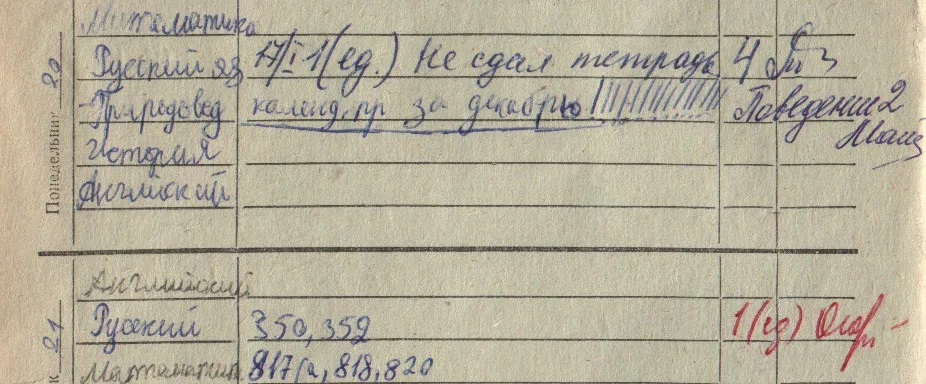 Математика
Понедельник 20
Русский яз 17/I 1(ед.) Не сдал тетрадь 4
Природовед календ. пр за декабрь Поведение 2
История
Английский
Английский
21
Русский 350, 352 1(ед)
Математик 817а, 818, 820